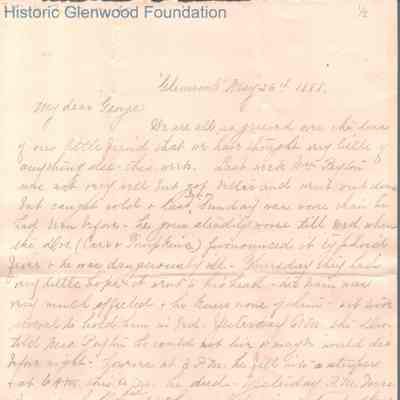 Historic Glenwood Foundation
1/2
Glenwood May 26th 1888.
My dear George
We are all so grieved over the loss
of our little friend that we have thought very little of
anything else this week. Last week
was not very well but got better and went out doors
but caught cold & last Sunday was worse than he
had been before - he grew steadily worse till Wed. when
the Drs. pronounced it typhoid
fever & he was dangerously ill - Thursday they had
very little hope it went to his head - his brain was
very much affected & he knew none of them
to hold him in bed. Yesterday A.M. the Drs.
told he could not live & maybe would die
before night - Yours at 3 P.M. he fell into a stupor
& at 6 he died - Yesterday P.M.